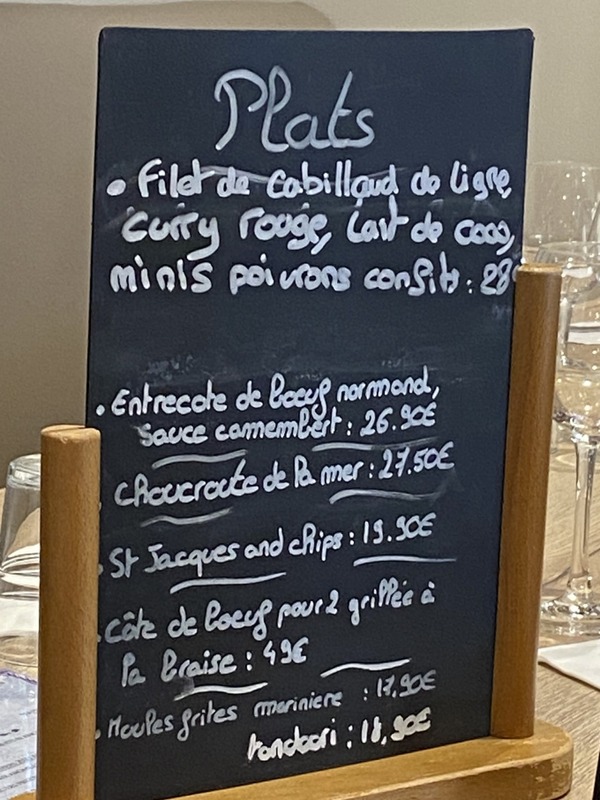 Plats
• Filet de Cabillaud de ligne,
Curry rouge, Lait de coco,
minis poivrons confits : 28€
• Entrecote de boeuf normand,
Sauce camembert : 26.90€
Choucroute de la mer : 27.50€
• St Jacques and chips : 19.90€
• Côte de boeuf pour 2 grillée à
la braise : 49€
• Moules frites mariniere : 17,90€
tandoori : 18,90€